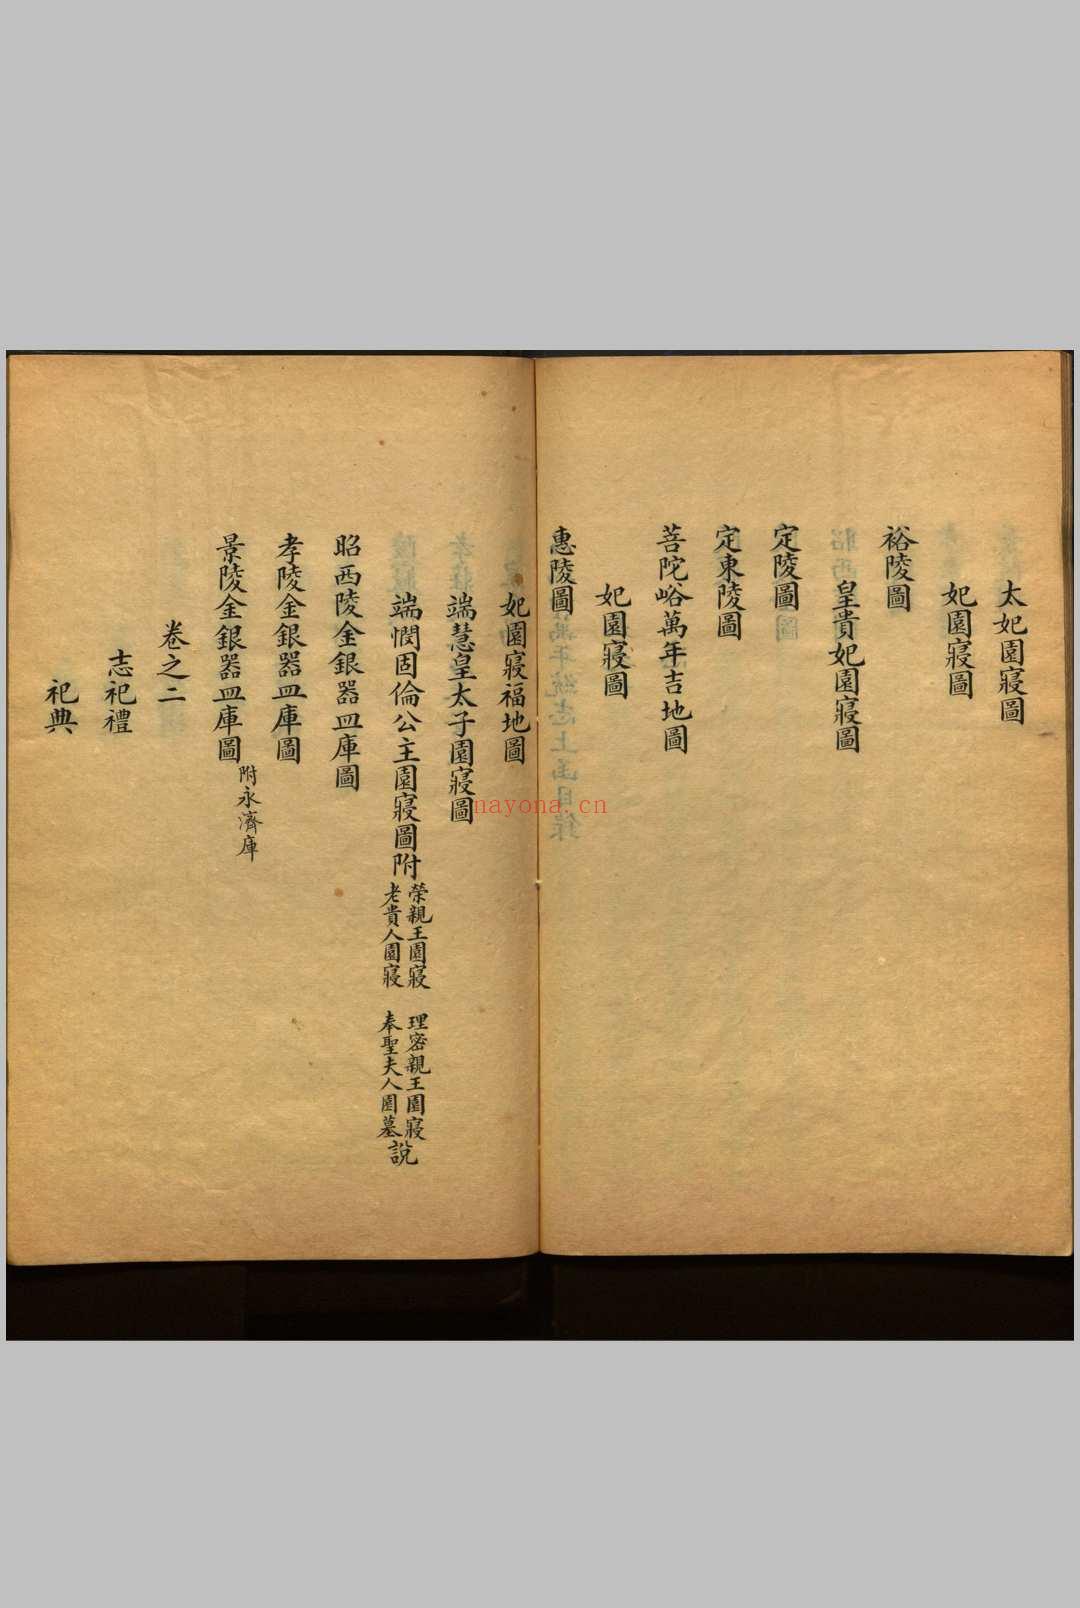 太妃園寢圖
妃園寢圖
裕陵圖
皇貴妃園寢圖
定陵圖
定東陵圖
菩陀峪萬年吉地圖
妃園寢圖
惠陵圖
妃園寢福地圖
端慧皇太子園寢圖
端憫固倫公主園寢圖附
榮親王園寢 理密親王園寢
老貴人園寢 奉聖夫人園墓
說
昭西陵金銀器皿庫圖
孝陵金銀器皿庫圖
景陵金銀器皿庫圖附永濟庫
卷之二
志祀禮
祀典
nayona.cn